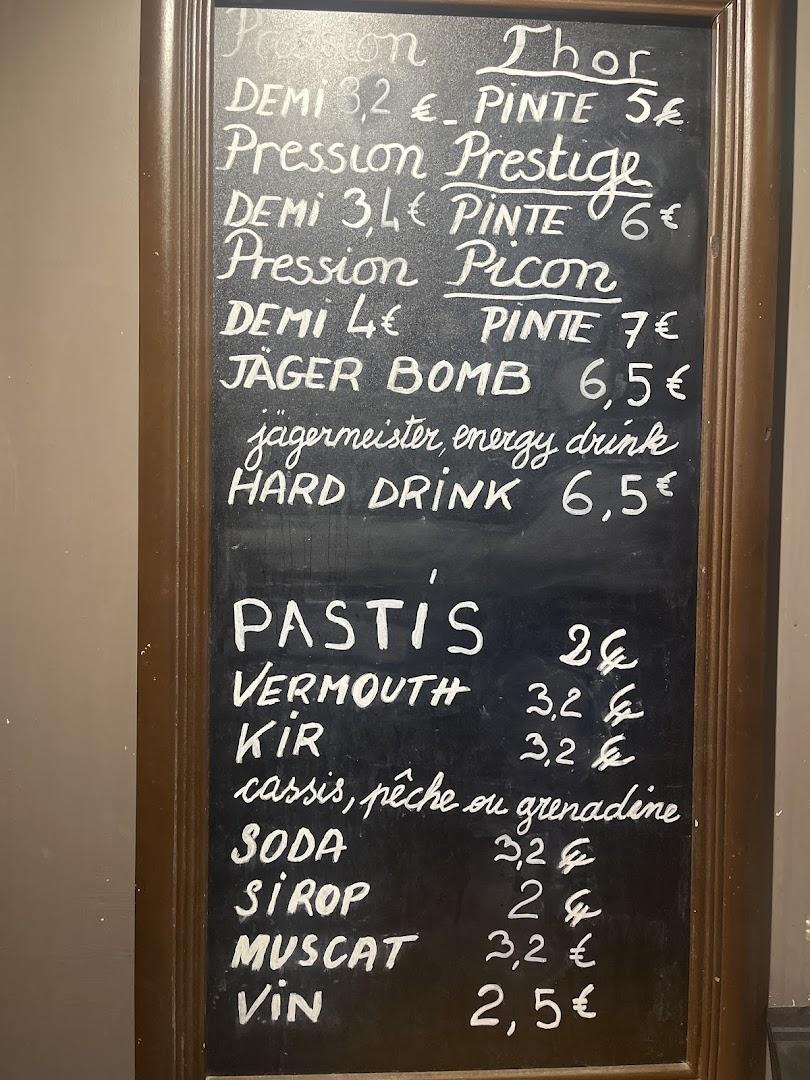 Pression Thor
DEMI 3,2 €_ PINTE 5€
Pression Prestige
DEMI 3,4€ PINTE 6€
Pression Picon
DEMI 4€ PINTE 7€
JÄGER BOMB 6,5€
jägermeister, energy drink
HARD DRINK 6,5€
PASTIS 2€
VERMOUTH 3,2 €
KIR 3,2 €
cassis, pêche ou grenadine
SODA 3,2 €
SIROP 2 €
MUSCAT 3,2 €
VIN 2,5€